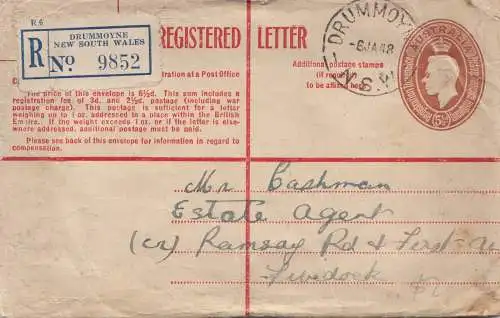 R.6
DRUMMOYNE
NEW SOUTH WALES
R No 9852
REGISTERED LETTER
DRUMMOY
-6JA48
N.S.W
AUSTRALIA
5½
Additional postage stamps
(if required)
to be affixed here
istration at a Post Office
The price of this envelope is 5½d. This sum includes a
registration fee of 3d. and 2½d. postage (including war
postage charge). This postage is sufficient for a letter
weighing up to 1 oz. addressed to a place within the British
Empire. If the weight exceeds 1 oz. or if the letter is else-
where addressed, additional postage must be paid.
Please see back of this envelope for information in regard to
compensation.
Mr Bashman
Estate Agent
(cr) Ramsay Rd & First